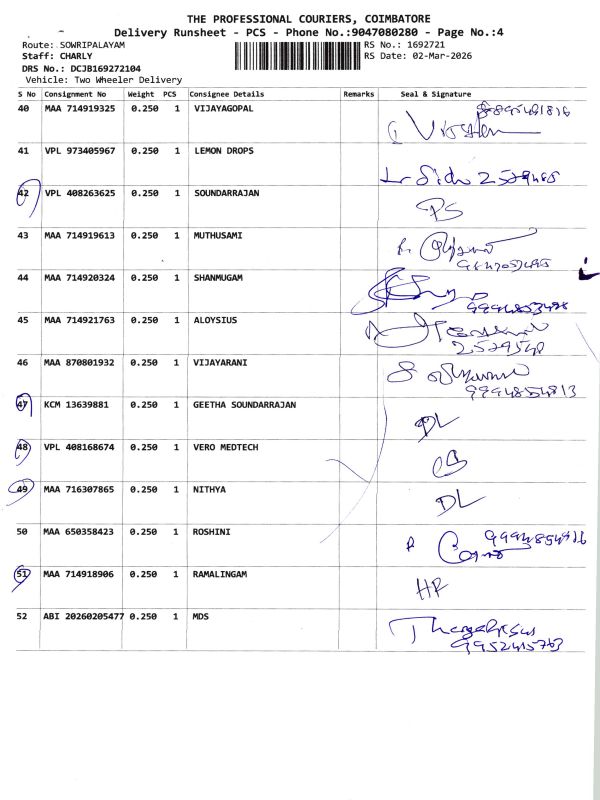 THE PROFESSIONAL COURIERS, COIMBATORE
Delivery Runsheet - PCS - Phone No.:9047080280 - Page No.:4
Route: SOWRIPALAYAM RS No.: 1692721
Staff: CHARLY RS Date: 02-Mar-2026
DRS No.: DCJB169272104
Vehicle: Two Wheeler Delivery
S No Consignment No Weight PCS Consignee Details Remarks Seal & Signature
40 MAA 714919325 0.250 1 VIJAYAGOPAL
41 VPL 973405967 0.250 1 LEMON DROPS
42 VPL 408263625 0.250 1 SOUNDARRAJAN PS
43 MAA 714919613 0.250 1 MUTHUSAMI
44 MAA 714920324 0.250 1 SHANMUGAM
45 MAA 714921763 0.250 1 ALOYSIUS
46 MAA 870801932 0.250 1 VIJAYARANI
9994854813
47 KCM 13639881 0.250 1 GEETHA SOUNDARRAJAN DL
48 VPL 408168674 0.250 1 VERO MEDTECH
49 MAA 716307865 0.250 1 NITHYA DL
50 MAA 650358423 0.250 1 ROSHINI
51 MAA 714918906 0.250 1 RAMALINGAM HR
52 ABI 20260205477 0.250 1 MDS
9952415763